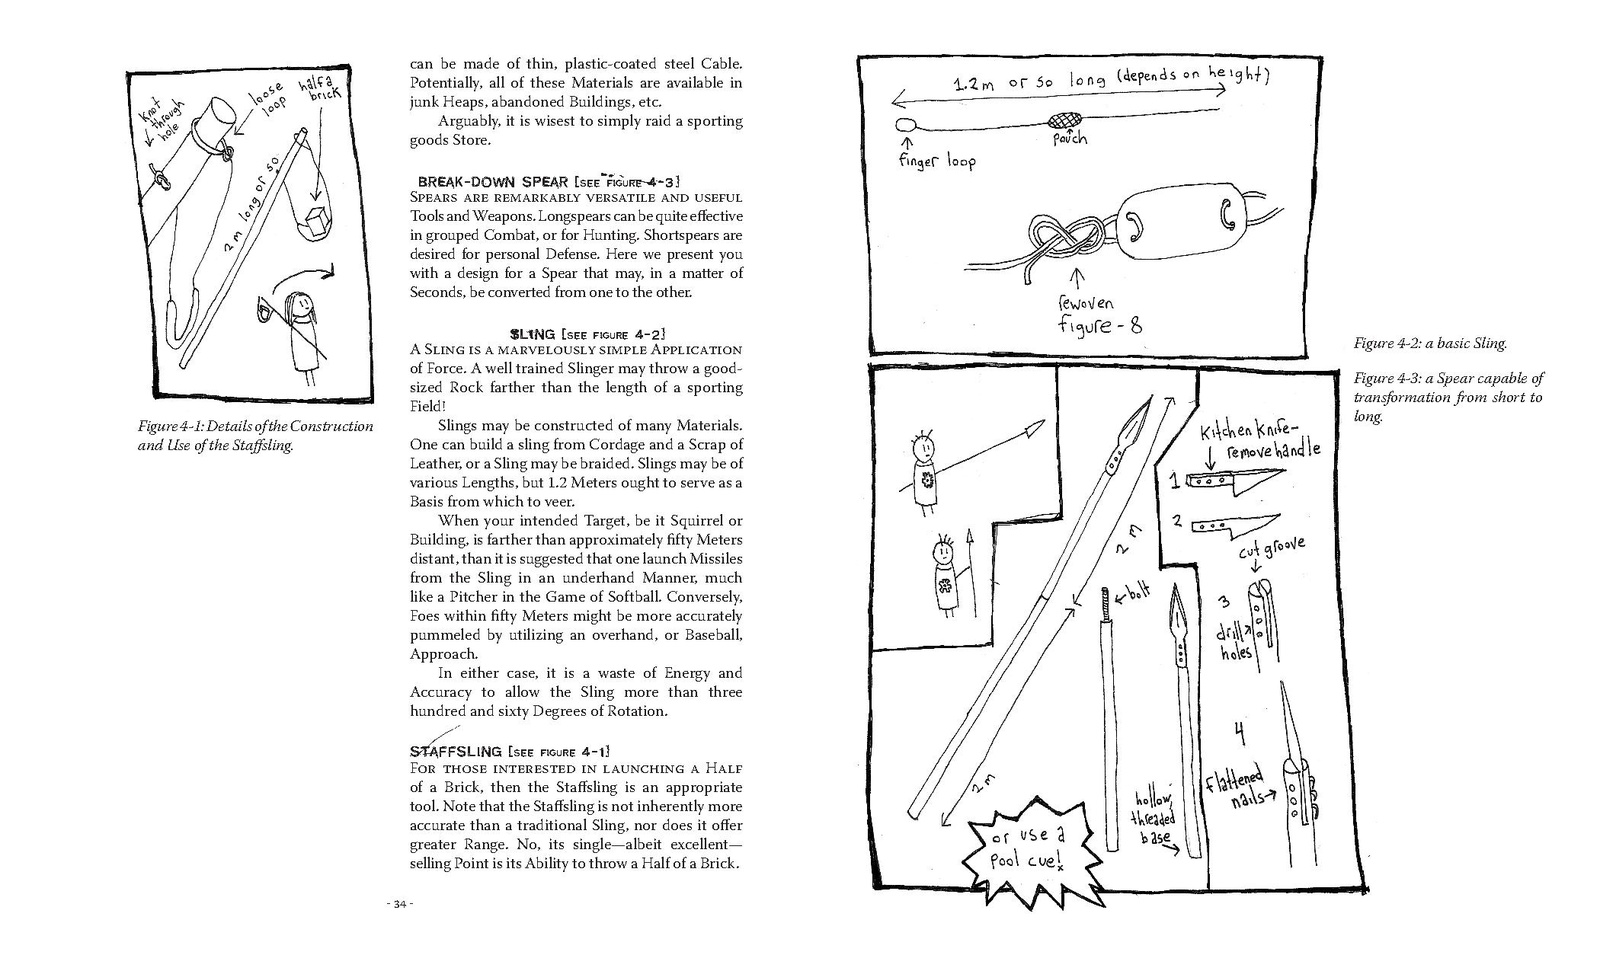 Knot
through
hole
loose
loop
half a
brick
2 m long or so
Figure 4-1: Details of the Construction
and Use of the Staffsling.
can be made of thin, plastic-coated steel Cable.
Potentially, all of these Materials are available in
junk Heaps, abandoned Buildings, etc.
Arguably, it is wisest to simply raid a sporting
goods Store.
BREAK-DOWN SPEAR [SEE FIGURE 4-3]
SPEARS ARE REMARKABLY VERSATILE AND USEFUL
Tools and Weapons. Longspears can be quite effective
in grouped Combat, or for Hunting. Shortspears are
desired for personal Defense. Here we present you
with a design for a Spear that may, in a matter of
Seconds, be converted from one to the other.
SLING [SEE FIGURE 4-2]
A SLING IS A MARVELOUSLY SIMPLE APPLICATION
of Force. A well trained Slinger may throw a good-
sized Rock farther than the length of a sporting
Field!
Slings may be constructed of many Materials.
One can build a sling from Cordage and a Scrap of
Leather, or a Sling may be braided. Slings may be of
various Lengths, but 1.2 Meters ought to serve as a
Basis from which to veer.
When your intended Target, be it Squirrel or
Building, is farther than approximately fifty Meters
distant, than it is suggested that one launch Missiles
from the Sling in an underhand Manner, much
like a Pitcher in the Game of Softball. Conversely,
Foes within fifty Meters might be more accurately
pummeled by utilizing an overhand, or Baseball,
Approach.
In either case, it is a waste of Energy and
Accuracy to allow the Sling more than three
hundred and sixty Degrees of Rotation.
STAFFSLING [SEE FIGURE 4-1]
FOR THOSE INTERESTED IN LAUNCHING A HALF
of a Brick, then the Staffsling is an appropriate
tool. Note that the Staffsling is not inherently more
accurate than a traditional Sling, nor does it offer
greater Range. No, its single—albeit excellent—
selling Point is its Ability to throw a Half of a Brick.
- 34 -
1.2m or so long (depends on height)
finger loop
pouch
rewoven
figure-8
Figure 4-2: a basic Sling.
Figure 4-3: a Spear capable of
transformation from short to
long.
2 m
2 m
bolt
hollow,
threaded
base
or use a
pool cue!
Kitchen Knife-
remove handle
1
2
cut groove
3
drill
holes
4
flattened
nails